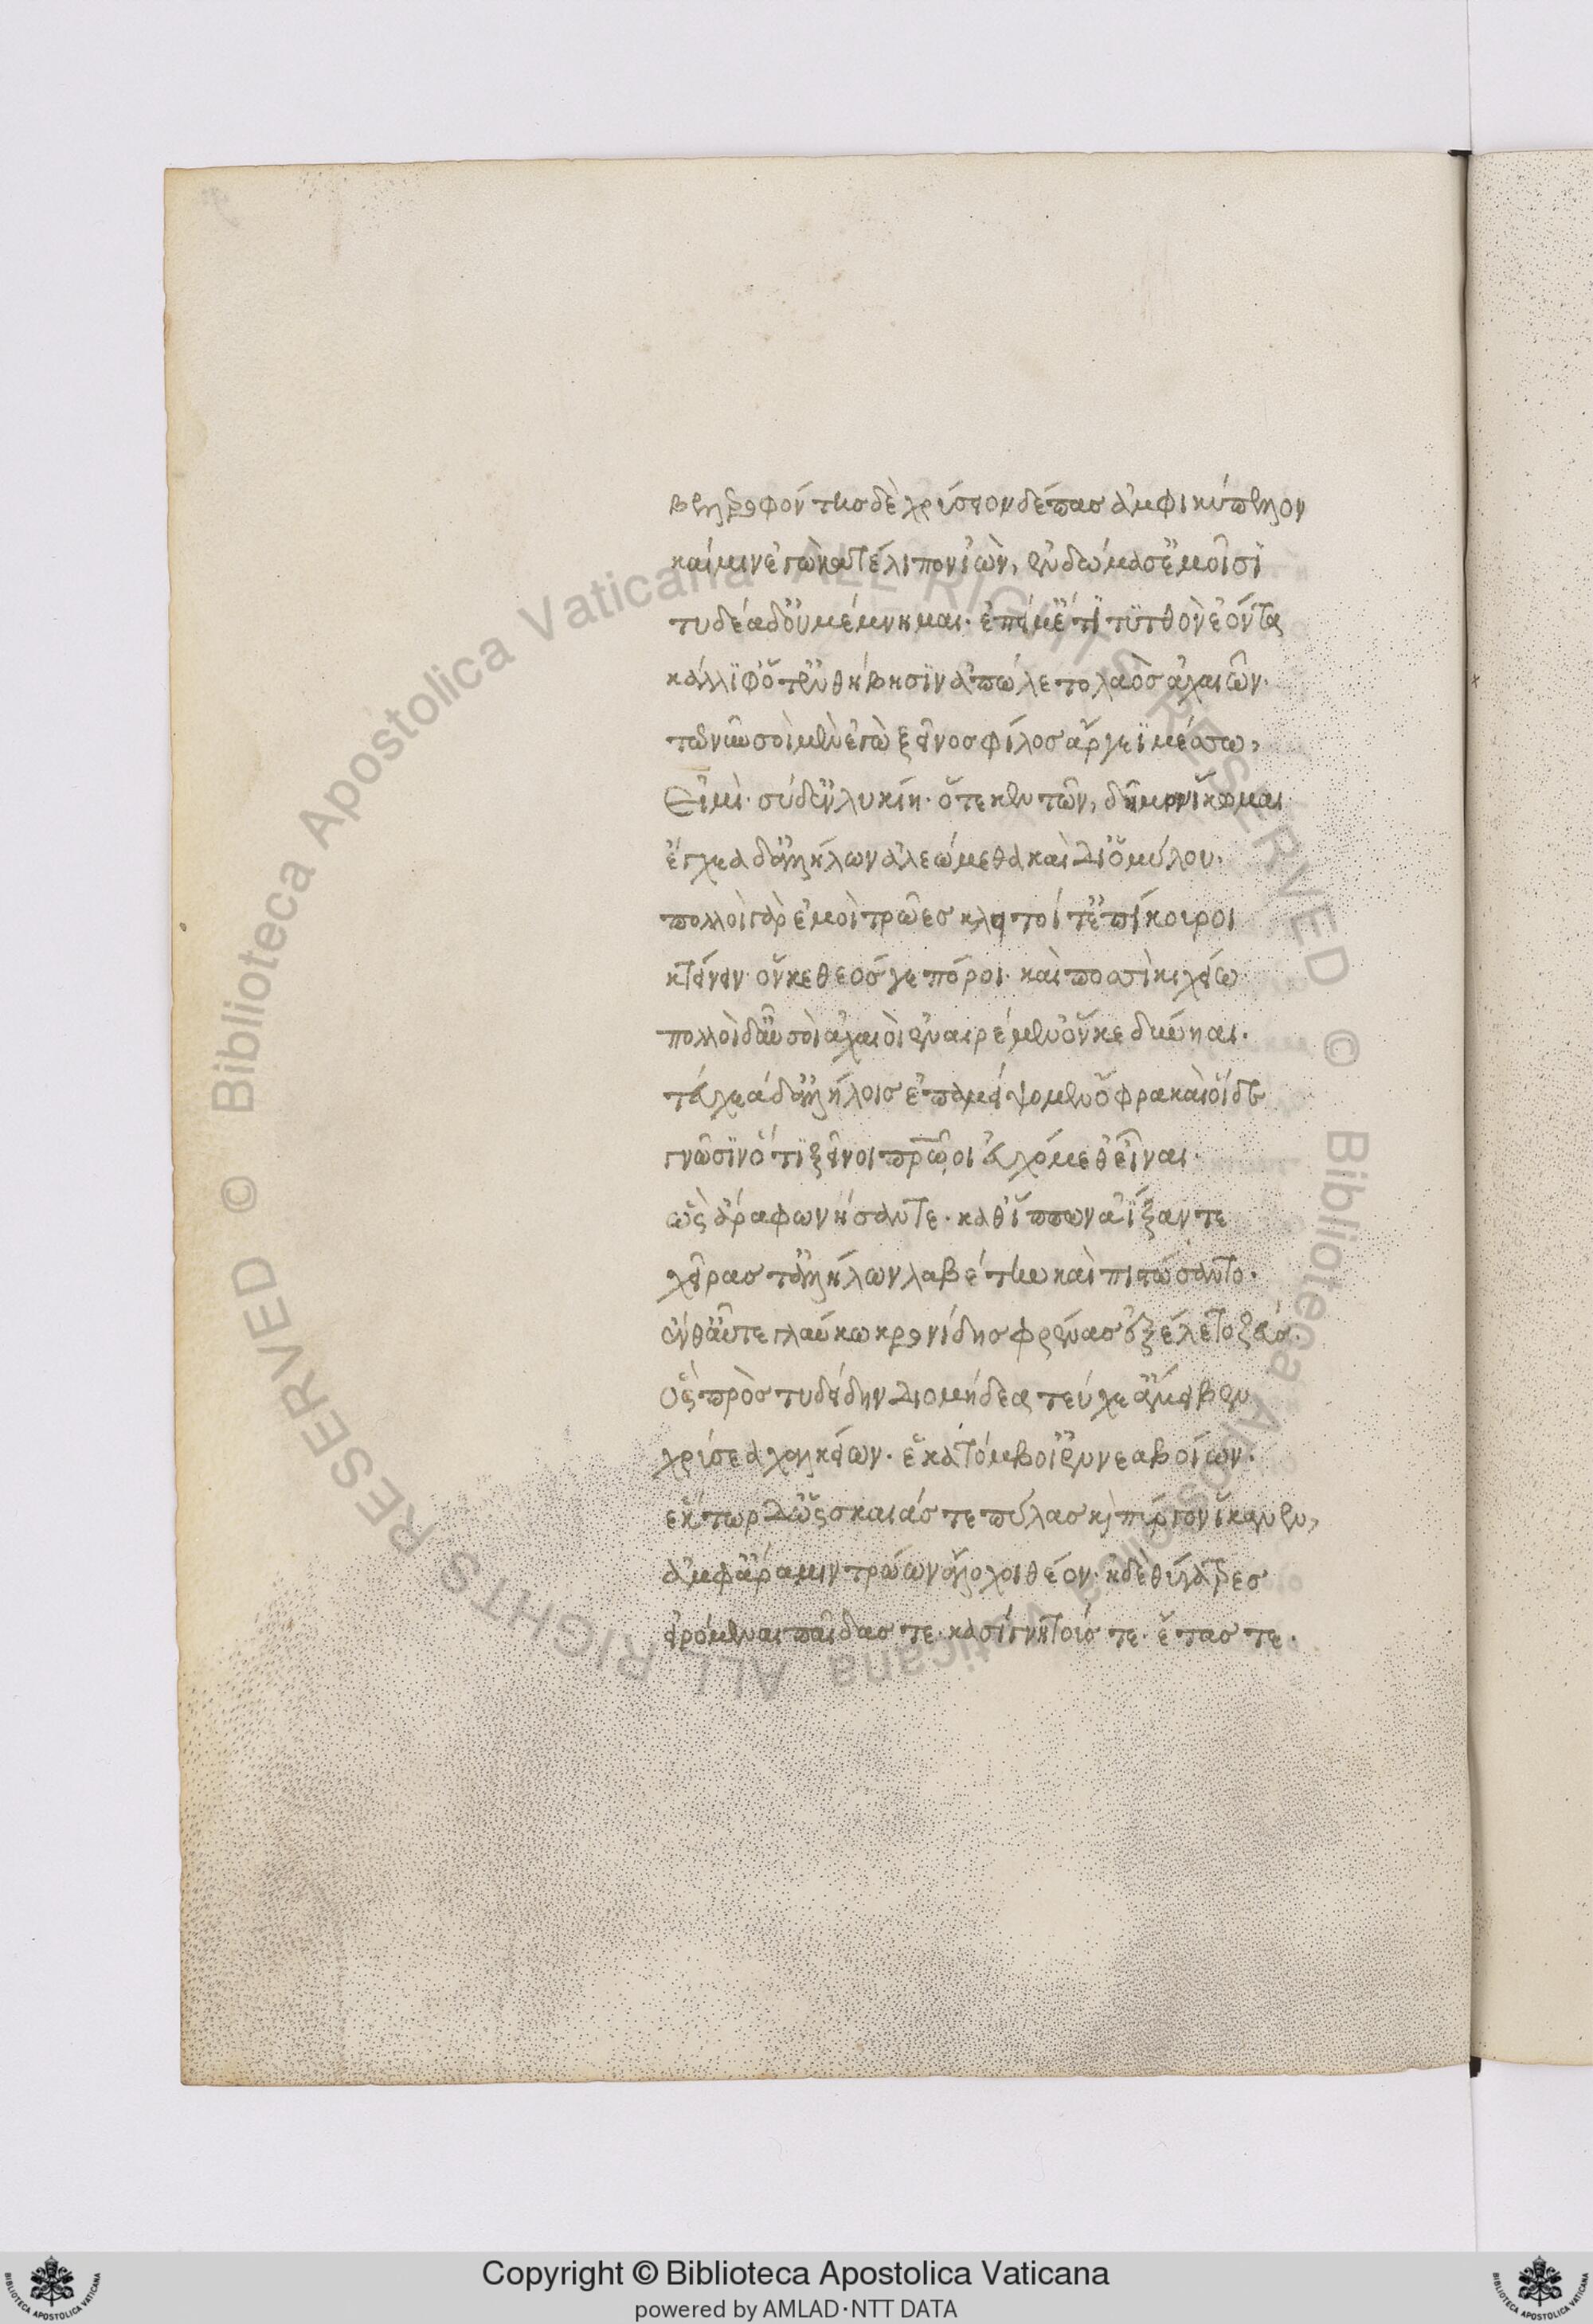 βελλεροφόντης δὲ χρύσεον δέπας ἀμφικύπελλον
καί μιν ἐγὼ κατέλιπον ἰὼν, ἐν δώμασ' ἐμοῖσϊ
τυδέα δ' οὐ μέμνημαι· ἐπεί μ' ἔτϊ τυτθὸν ἐόντα
κάλλϊφ' ὅτ' ἐν θήβησϊν ἀπώλετο λαὸς ἀχαιῶν·
τῶ νῦν σοὶ μὲν ἐγὼ ξεῖνος φίλος ἄργεϊ μέσσω,
Εἰμί· σὺ δ' ἐν λυκίη· ὅτε κεν τῶν, δῆμον ἵκωμαι
ἔγχεα δ' ἀλλήλων ἀλεώμεθα καὶ δι' ὁμίλου·
πολλοὶ γὰρ ἐμοὶ τρῶες κλειτοί τ' ἐπίκουροι
κτείνειν· ὅν κε θεός γε πόροι· καὶ ποσσὶ κιχείω
πολλοὶ δ' αὖ σοὶ ἀχαιοὶ ἐναιρέμεν ὅν κε δύνηαι·
τεύχεα δ' ἀλλήλοις ἐπαμείψομεν ὄφρα καὶ οἵδε
γνῶσϊν ὅτϊ ξεῖνοι πατρῶϊοι εὐχόμεθ' εἶναι·
ὣς ἄρα φωνήσαντε· καθ' ἵππων ἀΐξαντε
χεῖρας τ' ἀλλήλων λαβέτην καὶ πιστώσαντο·
ἔνθ' αὖτε γλαύκω κρονίδης φρένας ἐξέλετο ζεύς·
Ὃς πρὸς τυδείδην διομήδεα τεύχε' ἄμειβεν
χρύσεα χαλκείων· ἑκατόμβοι' ἐννεαβοίων·
ἕκτωρ δ' ὡς σκαιάς τε πύλας καὶ πύργον ἵκανεν,
ἀμφ' ἄρα μιν τρώων ἄλοχοι θέον· ἠδὲ θύγατρες
εἰρόμεναι παῖδας τε· κασίγνήτούς τε· ἔτας τε·
Copyright © Biblioteca Apostolica Vaticana
powered by AMLAD·NTT DATA